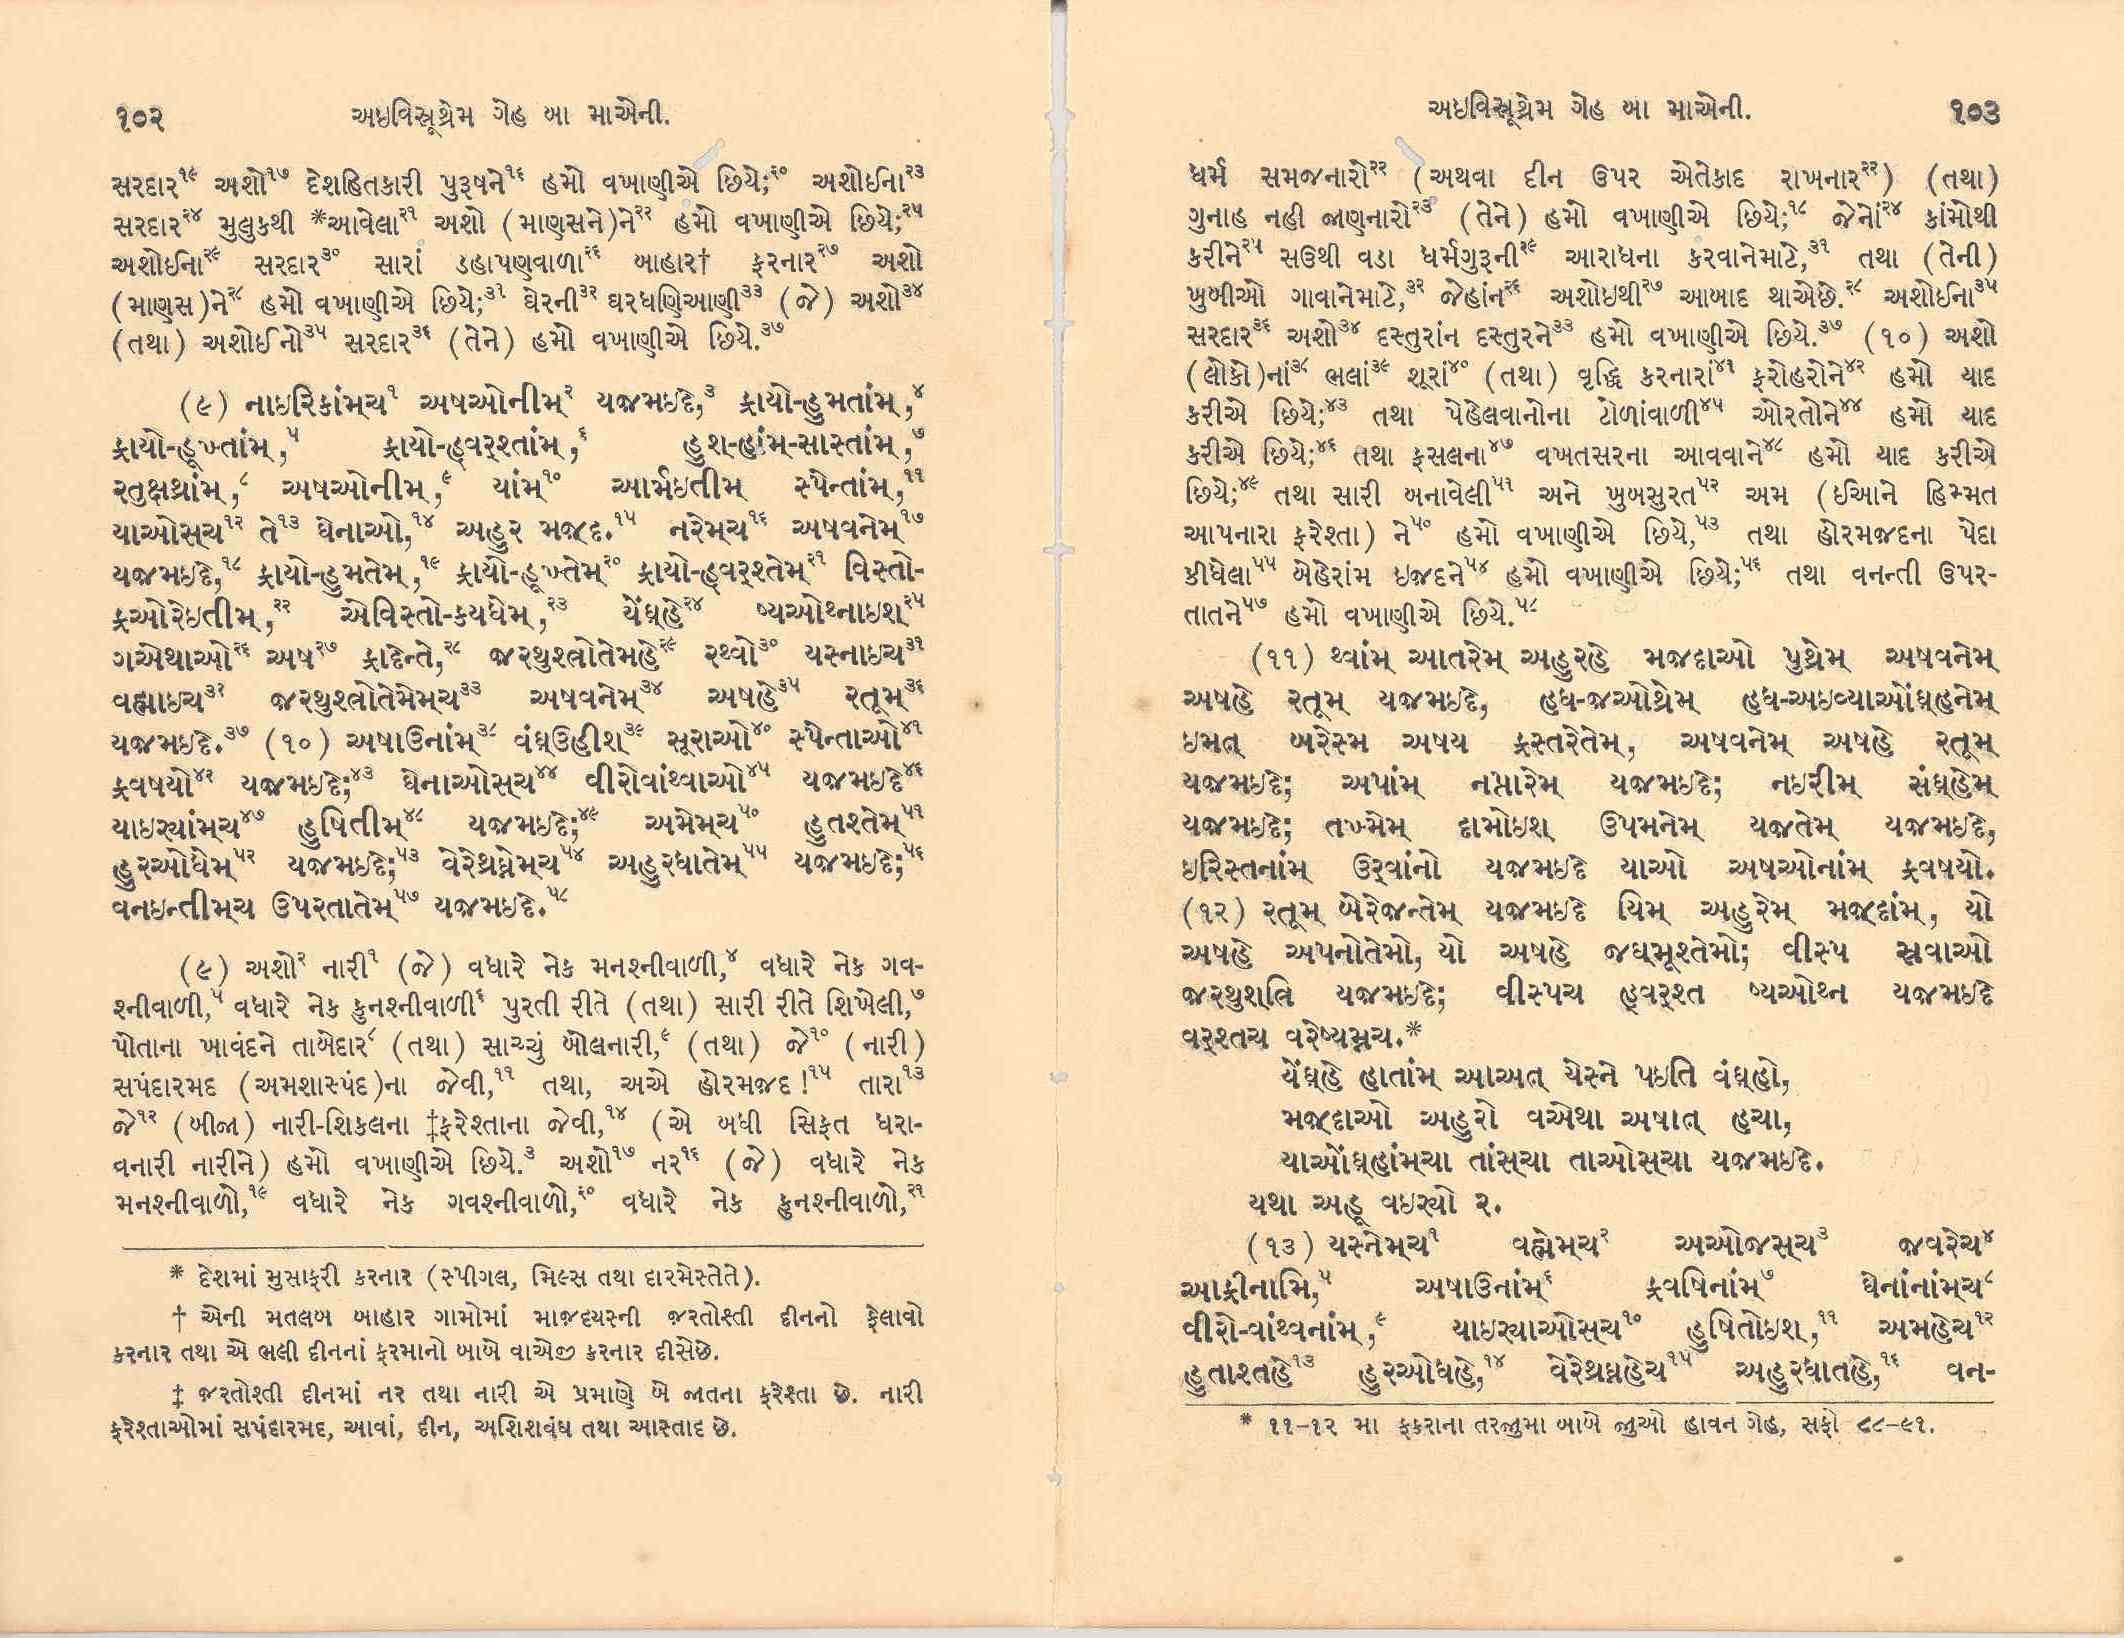 ૧૦૨ અઇવિસ્રૂથ્રેમ ગેહ બા માએની.
સરદાર૧૯ અશો૧૭ દેશહિતકારી પુરૂષને૧૬ હમો વખાણીએ છિયે;૨૦ અશોઈના૨૩
સરદાર૨૪ મુલુકથી *આવેલા૨૧ અશો (માણસને)ને૨૨ હમો વખાણીએ છિયે;૨૫
અશોઈના૨૯ સરદાર૩૦ સારાં ડહાપણવાળા૨૬ બાહાર† ફરનાર૨૭ અશો
(માણસ)ને૨૮ હમો વખાણીએ છિયે;૩૧ ઘેરની૩૨ ઘરધણિઆણી૩૩ (જે) અશો૩૪
(તથા) અશોઈનો૩૫ સરદાર૩૬ (તેને) હમો વખાણીએ છિયે.૩૭
(૯) નાઇરિકાંમ્‌ચ૧ અષઓનીમ્૨ યજમઇદે,૩ ફ્રાયો-હુમતાંમ્,૪
ફ્રાયો-હૂખ્તાંમ્,૫ ફ્રાયો-હ્‌વર્‌શ્તાંમ્,૬ હુશ-હાંમ્-સાસ્તાંમ્,૭
રતુક્ષથ્રાંમ્,૮ અષઓનીમ્,૯ યાંમ્૧૦ આર્મઇતીમ્ સ્પેન્તાંમ્,૧૧
યાઓસ્‌ચ૧૨ તે૧૩ ઘેનાઓ,૧૪ અહુર મજ્‌દ.૧૫ નરેમ્‌ચ૧૬ અષવનેમ્૧૭
યજમઇદે,૧૮ ફ્રાયો-હુમતેમ્,૧૯ ફ્રાયો-હૂખ્તેમ્૨૦ ફ્રાયો-હ્‌વર્‌શ્તેમ્૨૧ વિસ્તો-
ફ્રઓરેઇતીમ્,૨૨ એવિસ્તો-કયધેમ્,૨૩ યેંઘ્‌હે૨૪ ષ્યઓથ્નાઇશ્૨૫
ગએથાઓ૨૬ અષ૨૭ ફ્રાદેન્તે,૨૮ જરથુશ્ત્રોતેમહે૨૯ રથ્વો૩૦ યસ્નાઇચ૩૧
વહ્માઇચ૩૨ જરથુશ્ત્રોતેમેમ્‌ચ૩૩ અષવનેમ્૩૪ અષહે૩૫ રતૂમ્૩૬
યજમઇદે.૩૭ (૧૦) અષાઉનાંમ્૩૮ વંઘ્‌ઉહીશ્૩૯ સૂરાઓ૪૦ સ્પેન્તાઓ૪૧
ફ્રવષયો૪૨ યજમઇદે;૪૩ ઘેનાઓસ્‌ચ૪૪ વીરોવાંથ્વાઓ૪૫ યજમઇદે૪૬
યાઇર્યાંમ્‌ચ૪૭ હુષિતીમ્૪૮ યજમઇદે;૪૯ અમેમ્‌ચ૫૦ હુતશ્તેમ્૫૧
હુરઓધેમ્૫૨ યજમઇદે;૫૩ વેરેથ્રઘ્નેમ્‌ચ૫૪ અહુરધાતેમ્૫૫ યજમઇદે;૫૬
વનઇન્તીમ્‌ચ ઉપરતાતેમ્૫૭ યજમઇદે.૫૮
(૯) અશો૨ નારી૧ (જે) વધારે નેક મનશ્નીવાળી,૪ વધારે નેક ગવ-
શ્નીવાળી,૫ વધારે નેક કુનશ્નીવાળી૬ પુરતી રીતે (તથા) સારી રીતે શિખેલી,૭
પોતાના ખાવંદને તાબેદાર૮ (તથા) સાચ્ચું બોલનારી,૯ (તથા) જે૧૦ (નારી)
સપંદારમદ (અમશાસ્પંદ)ના જેવી,૧૧ તથા, અએ હોરમજદ!૧૫ તારા૧૩
જે૧૨ (બીજા) નારી-શિકલના ‡ફરેશ્તાના જેવી,૧૪ (એ બધી સિફત ધરા-
વનારી નારીને) હમો વખાણીએ છિયે.૩ અશો૧૭ નર૧૬ (જે) વધારે નેક
મનશ્નીવાળો,૧૯ વધારે નેક ગવશ્નીવાળો,૨૦ વધારે નેક કુનશ્નીવાળો,૨૧
* દેશમાં મુસાફરી કરનાર (સ્પીગલ, મિલ્સ તથા દારમેસ્તેતે).
† એની મતલબ બાહાર ગામોમાં માજદયસ્ની જરતોશ્તી દીનનો ફેલાવો
કરનાર તથા એ ભલી દીનનાં ફરમાનો બાબે વાએજી કરનાર દીસેછે.
‡ જરતોશ્તી દીનમાં નર તથા નારી એ પ્રમાણે બે જાતના ફરેશ્તા છે. નારી
ફરેશ્તાઓમાં સપંદારમદ, આવાં, દીન, અશિશવંઘ તથા આસ્તાદ છે.
અઇવિસ્રૂથ્રેમ ગેહ બા માએની. ૧૦૩
ધર્મ સમજનારો૨૨ (અથવા દીન ઉપર એતેકાદ રાખનાર૨૨) (તથા)
ગુનાહ નહી જાણનારો૨૩ (તેને) હમો વખાણીએ છિયે;૧૮ જેનાં૨૪ કાંમોથી
કરીને૨૫ સઉથી વડા ધર્મગુરૂની૨૯ આરાધના કરવાનેમાટે,૩૧ તથા (તેની)
ખુબીઓ ગાવાનેમાટે,૩૨ જેહાંન૨૬ અશોઇથી૨૭ આબાદ થાએછે.૨૮ અશોઈના૩૫
સરદાર૩૬ અશો૩૪ દસ્તુરાંન દસ્તુરને૩૩ હમો વખાણીએ છિયે.૩૭ (૧૦) અશો
(લોકો)નાં૩૮ ભલાં૩૯ શૂરાં૪૦ (તથા) વૃદ્ધિ કરનારાં૪૧ ફરોહરોને૪૨ હમો યાદ
કરીએ છિયે;૪૩ તથા પેહેલવાનોના ટોળાંવાળી૪૫ ઓરતોને૪૪ હમો યાદ
કરીએ છિયે;૪૬ તથા ફસલના૪૭ વખતસરના આવવાને૪૮ હમો યાદ કરીએ
છિયે;૪૯ તથા સારી બનાવેલી૫૧ અને ખુબસુરત૫૨ અમ (ઈઆને હિમ્મત
આપનારા ફરેશ્તા) ને૫૦ હમો વખાણીએ છિયે,૫૩ તથા હોરમજદના પેદા
કીધેલા૫૫ બેહેરાંમ ઇજદને૫૪ હમો વખાણીએ છિયે;૫૬ તથા વનન્તી ઉપર-
તાતને૫૭ હમો વખાણીએ છિયે.૫૮
(૧૧) થ્વાંમ્ આતરેમ્ અહુરહે મજદાઓ પુથ્રેમ્ અષવનેમ્
અષહે રતૂમ્ યજમઇદે, હધ-જઓથ્રેમ્ હધ-અઇવ્યાઓંઘ્‌હનેમ્
ઇમત્ બરેસ્મ અષય ફ્રસ્તરેતેમ્, અષવનેમ્ અષહે રતૂમ્
યજમઇદે; અપાંમ્ નપ્તારેમ્ યજમઇદે; નઇરીમ્ સંઘ્‌હેમ્
યજમઇદે; તખ્મેમ્ દામોઇશ્ ઉપમનેમ્ યજતેમ્ યજમઇદે,
ઇરિસ્તનાંમ્ ઉર્‌વાંનો યજમઇદે યાઓ અષઓનાંમ્ ફ્રવષયો.
(૧૨) રતૂમ્ બેરેજન્તેમ્ યજમઇદે યિમ્ અહુરેમ્ મજ્‌દાંમ્, યો
અષહે અપનોતેમો, યો અષહે જઘ્‌મૂશ્તેમો; વીસ્પ સ્રવાઓ
જરથુશ્ત્રિ યજમઇદે; વીસ્પચ હ્‌વર્‌શ્ત ષ્યઓથ્ન યજમઇદે
વર્‌શ્તચ વરેષ્યમ્નચ.*
યેંઘ્‌હે હાતાંમ્ આઅત્ યેસ્ને પઇતિ વંઘ્‌હો,
મજ્‌દાઓ અહુરો વએથા અષાત્ હચા,
યાઓંઘ્‌હાંમ્‌ચા તાંસ્‌ચા તાઓસ્‌ચા યજમઇદે.
યથા અહૂ વઇર્યો ૨.
(૧૩) યસ્નેમ્‌ચ૧ વહ્મેમ્‌ચ૨ અઓજસ્‌ચ૩ જવરેચ૪
આફ્રીનામિ,૫ અષાઉનાંમ્૬ ફ્રવષિનાંમ્૭ ઘેનાંનાંમ્‌ચ૮
વીરો-વાંથ્વનાંમ્,૯ યાઇર્યાઓસ્‌ચ૧૦ હુષિતોઇશ્,૧૧ અમહેચ૧૨
હુતાશ્તહે૧૩ હુરઓધહે,૧૪ વેરેથ્રઘ્નહેચ૧૫ અહુરધાતહે,૧૬ વન-
* ૧૧-૧૨ મા ફકરાના તરજુમા બાબે જુઓ હાવન ગેહ, સફો ૮૮-૯૧.